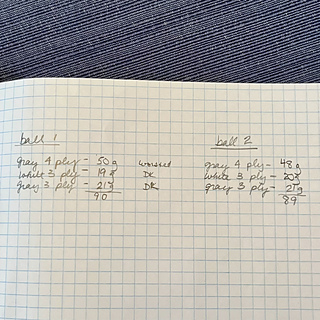 ball 1
gray 4 ply - 50g worsted
white 3 ply - 19g DK
gray 3 ply - 21g DK
90
ball 2
gray 4 ply - 48g
white 3 ply - 20g
gray 3 ply - 21g
89